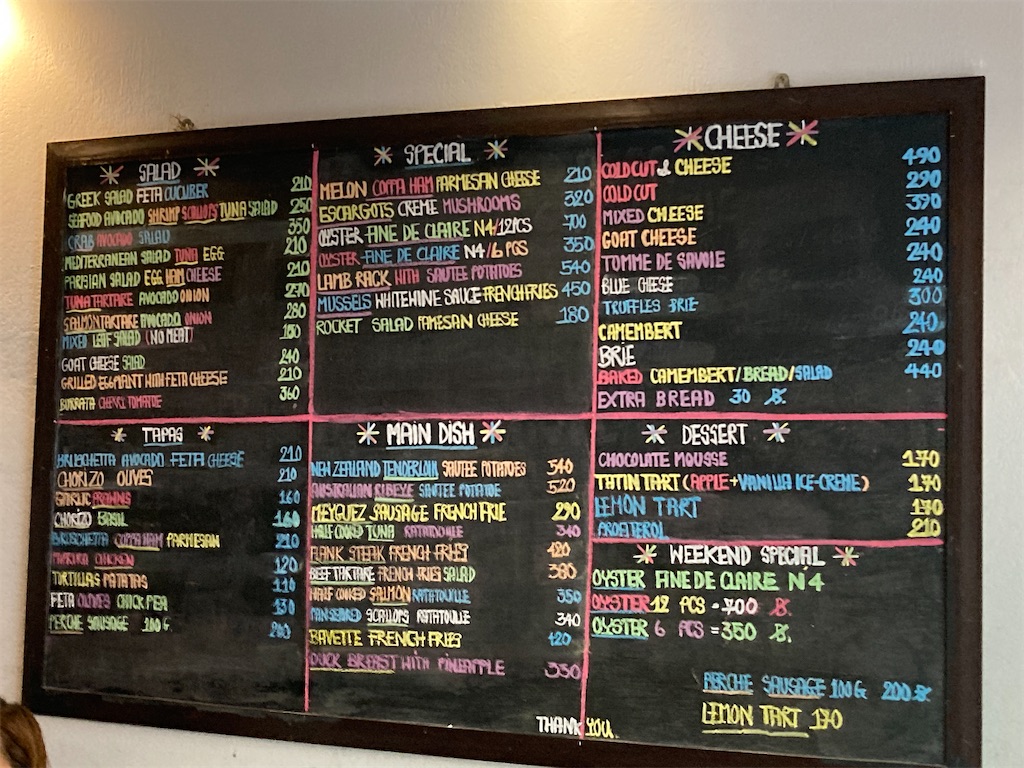 SALAD
GREEK SALAD FETA CUCUBER 210
SEAFOOD AVOCADO SHRIMP SCALLOPS TUNA SALAD 250
CRAB AVOCADO SALAD 350
MEDITERRANEAN SALAD TUNA EGG 210
PARISIAN SALAD EGG HAM CHEESE 210
TUNA TARTARE AVOCADO ONION 270
SALMON TARTARE AVOCADO ONION 280
MIXED LEAF SALAD (NO MEAT) 180
GOAT CHEESE SALAD 240
GRILLED EGGPLANT WITH FETA CHEESE 210
BURRATA CHERRI TOMATOE 360
SPECIAL
MELON COPPA HAM PARMESAN CHEESE 210
ESCARGOTS CREME MUSHROOMS 320
OYSTER FINE DE CLAIRE N4/12PCS 700
OYSTER FINE DE CLAIRE N4/6 PCS 350
LAMB RACK WITH SAUTEE POTATOES 540
MUSSELS WHITE WINE SAUCE FRENCH FRIES 450
ROCKET SALAD PAMESAN CHEESE 180
CHEESE
COLD CUT & CHEESE 490
COLD CUT 290
MIXED CHEESE 390
GOAT CHEESE 240
TOMME DE SAVOIE 240
BLUE CHEESE 240
TRUFFLES BRIE 300
CAMEMBERT 240
BRIE 240
BAKED CAMEMBERT/BREAD/SALAD 440
EXTRA BREAD 30 ฿.
TAPAS
BRUSCHETTA AVOCADO FETA CHEESE 210
CHORIZO OLIVES 210
GARLIC PRAWNS 160
CHORIZO BASIL 160
BRUSCHETTA COPPA HAM PARMESAN 210
PAPRIKA CHICKEN 120
TORTILLAS PATATAS 110
FETA OLIVES CHICK PEA 130
PERCHE SAUSAGE 100 G. 200
MAIN DISH
NEW ZEALAND TENDERLOIN SAUTEE POTATOES 540
AUSTRALIAN RIBEYE SAUTEE POTATOE 520
MEYGUEZ SAUSAGE FRENCH FRIE 290
HALF COOKED TUNA RATATOUILLE 340
FLANK STEAK FRENCH FRIES 420
BEEF TARTARE FRENCH FRIES SALAD 380
HALF COOKED SALMON RATATOUILLE 350
PAN SEARED SCALLOPS RATATOUILLE 340
BAVETTE FRENCH FRIES 420
DUCK BREAST WITH PINEAPPLE 350
THANK YOU.
DESSERT
CHOCOLATE MOUSSE 170
TATIN TART (APPLE+VANILLA ICE-CREME) 170
LEMON TART 170
PROFITEROL 210
WEEKEND SPECIAL
OYSTER FINE DE CLAIRE N4
OYSTER 12 PCS = 700 ฿.
OYSTER 6 PCS = 350 ฿.
PERCHE SAUSAGE 100G 200 ฿.
LEMON TART 170